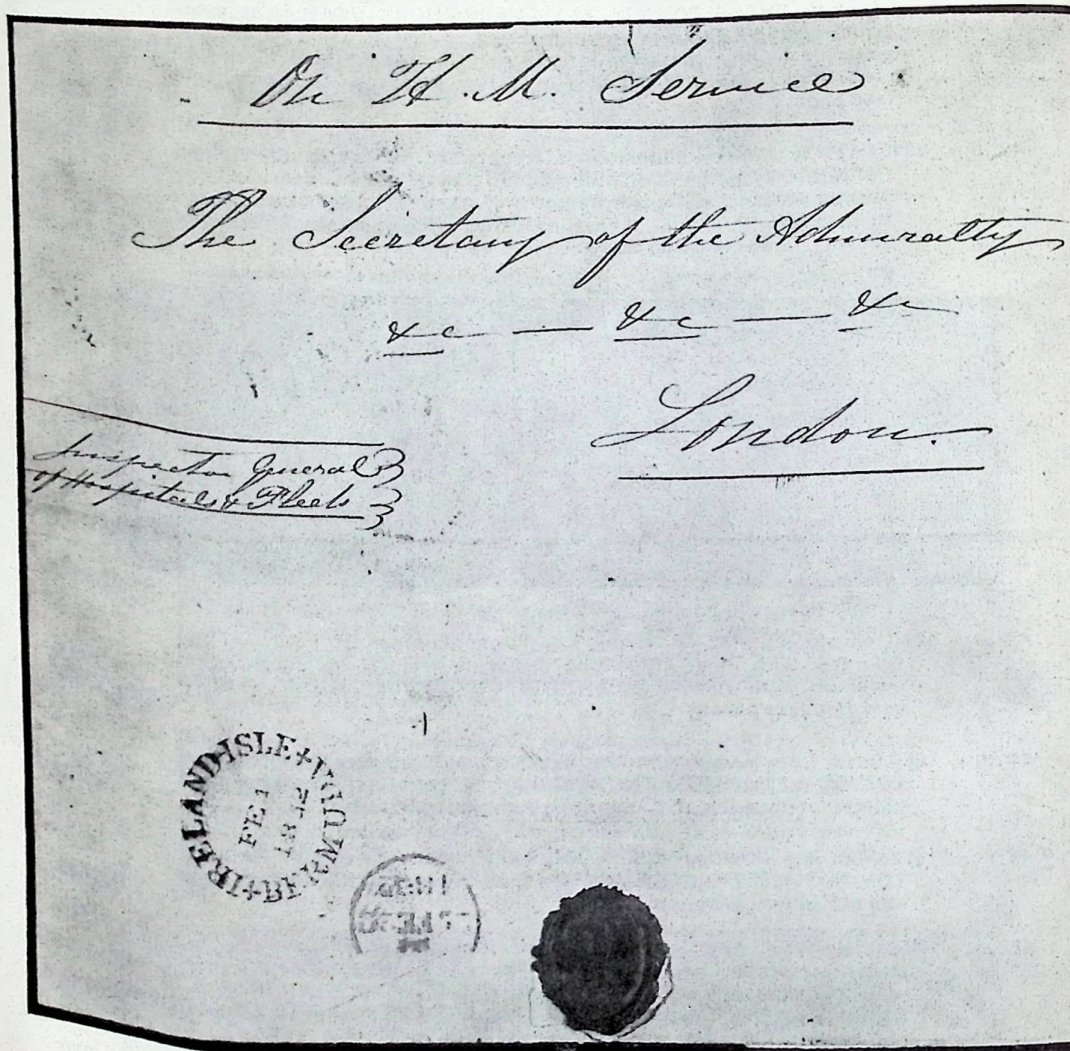 On H. M. Service
The Secretary of the Admiralty
&c — &c — &c
London.
Inspector General
of Hospitals & Fleets
IRELAND ISLE + BERMUDA +
FE 1